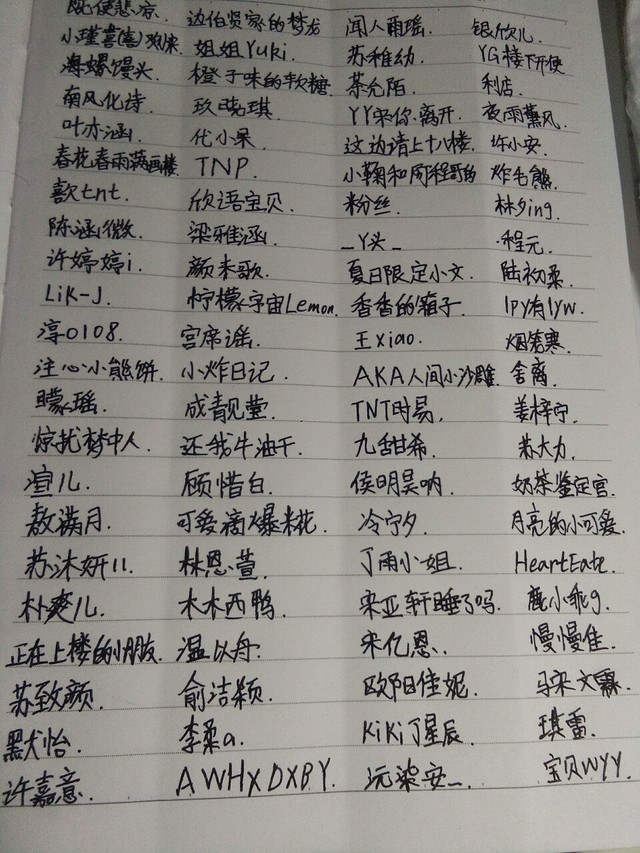 既使悲凉. 边伯贤家的梦龙 闻人雨瑶. 银欣儿.
小瑾喜(喜)欢 姐姐Yuki. 苏稚幼. YG楼下开便
海螺馒头. 橙子味的软糖. 茶允陌. 利店.
南风化诗. 玖晓琪. YY宋你.离开. 夜雨薰风.
叶亦涵. 代小呆. 这边请上十八楼. 许小安.
春花春雨满画楼. TNP. 小鞠和周程哥的 炸毛熊.
歖tnt. 欣语宝贝. 粉丝. 林夕ing.
陈涵微. 梁雅涵. _丫头_ 程元.
许婷婷i. 颜未歌. 夏日限定小文. 陆初柔.
LiK-J. 柠檬宇宙Lemon. 香香的箱子. lPy有lyw.
淳0108. 宫席谣. 王xiao. 烟笼寒.
注心小熊饼. 小炸日记. AKA人间小沙雕. 舍离.
曚瑶. 成青见萱. TNT时易. 姜梓宁.
惊扰梦中人. 还我牛油干. 九甜希. 苏大力.
渲儿. 顾惜白. 侯明昊呐. 奶茶鉴定官.
敖满月. 可爱滴爆米花. 冷宁夕. 月亮的小可爱.
苏沐妍儿. 林恩萱. 丁雨小姐. HeartEate.
朴爽儿. 木木西鸭. 宋亚轩睡了吗. 鹿小乖g.
正在上楼的小朋友. 温以舟. 宋亿恩. 慢慢佳.
苏致颜. 俞洁颖. 欧阳佳妮. 马宋文霖.
黑犬怡. 李柔a. KiKi丁星辰. 琪雷.
许嘉意. AWHXDXBY. 沅柒安_. 宝贝WYY.